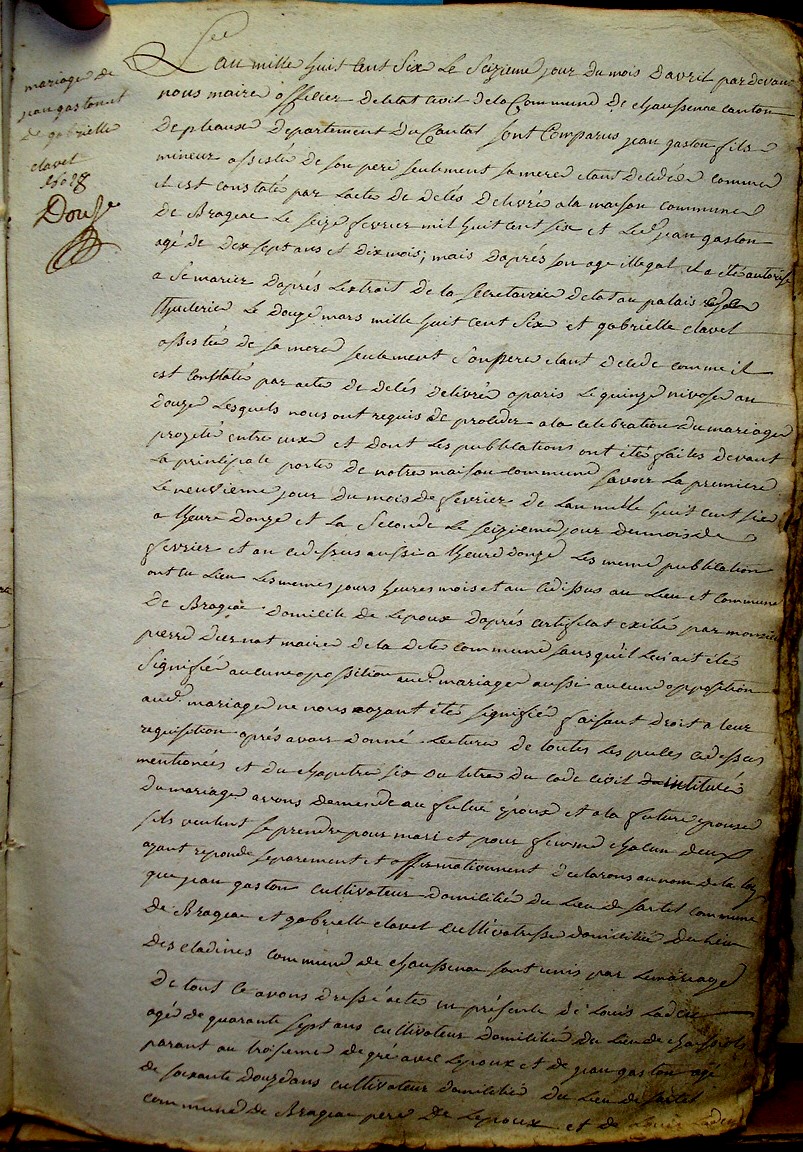 mariage de
jean gaston et
de gabrielle
clavel
Douze
L'an mille huit cent six le seizieme jour du mois d'avril par devant
nous maire officier de letat civil de la Commune de chaussenac canton
de pleaux departement du Cantal sont Comparus jean gaston fils
mineur assisté de son pere seulement sa mere etant decedée comme
il est constaté par lacte de decés delivré a la maison commune
de Brageac le seize fevrier mil huit cent six et led. jean gaston
agé de dix sept ans et dix mois; mais daprés son age illegal il a été autorisé
a se marier daprés lextrait de la secretairie detat au palais
thuilerie le douze mars mille huit cent six et gabrielle clavel
assistée de sa mere seulement son pere etant decedé comme il
est constaté par acte de decés delivré a paris le quinze nivose an
douze lesquels nous ont requis de proceder a la celebration du mariage
projeté entre eux et dont les publications ont été faites devant
la principale porte de notre maison commune savoir la premiere
le neuvieme jour du mois de fevrier de lan mille huit cent six
a heure douze et la seconde le seizieme jour du mois de
fevrier et an cidessus aussi a heure douze les meme publication
ont eu lieu les memes jours heures mois et an cidessus au lieu et commune
de Brageac domicile de lepoux daprés certificat exibé par monsieur
pierre maire de la dite commune sans qu'il lui ait été
signifié aucune opposition aud. mariage aussi aucune opposition
aud. mariage ne nous ayant été signifié faisant droit a leur
requisition aprés avoir donné lecture de toutes les pieces cidessus
mentionées et du chapitre six du titre du code civil intitulé
du mariage avons demandé au futur epoux et a la future epouse
sils veulent se prendre pour mari et pour femme chacun deux
ayant repondu separement et affirmativement declarons au nom de la loy
que jean gaston cultivateur domicilié du lieu de sartel commune
de Brageac et gabrielle clavel cultivatrice domiciliée du lieu
des cladines commune de chaussenac sont unis par le mariage
de tout ce avons dressé acte en présence de Louis Ladeu
agé de quarante sept ans cultivateur domicilié du lieu de
parant au troisieme degré avec lepoux et de jean gaston agé
de soixante douze ans cultivateur domicilié du lieu de sartel
commune de Brageac pere de lepoux et de Louis